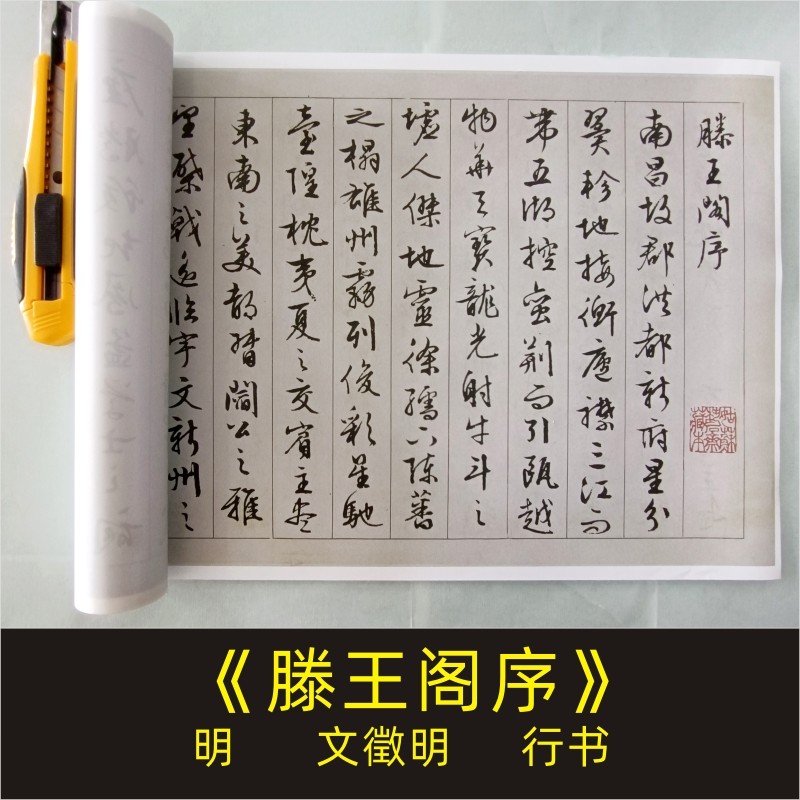 滕王閣序
南昌故郡洪都新府星分
翼軫地接衡廬襟三江而
帶五湖控蛮荆而引甌越
物華天寶龍光射牛斗之
墟人傑地靈徐孺下陳蕃
之榻雄州霧列俊彩星馳
臺隍枕夷夏之交賓主盡
東南之美都督閻公之雅
望棨戟遥臨宇文新州之
《滕王阁序》
明 文徵明 行书